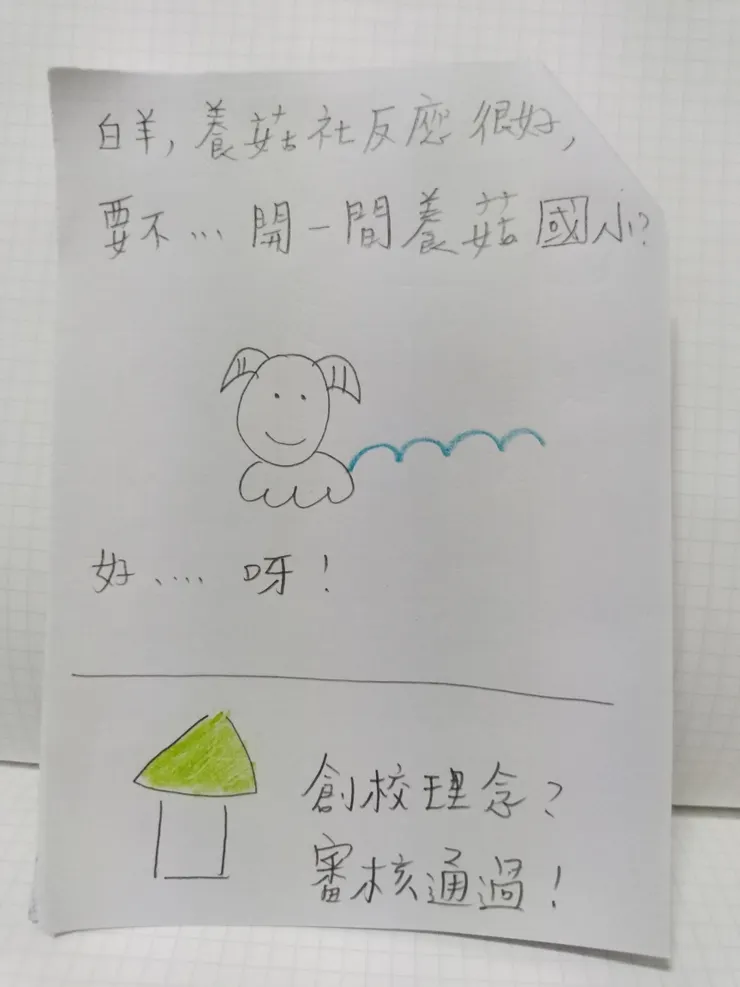 白羊,養菇社反應很好,
要不...開一間養菇國小?
好....呀!
創校理念?
審核通過!